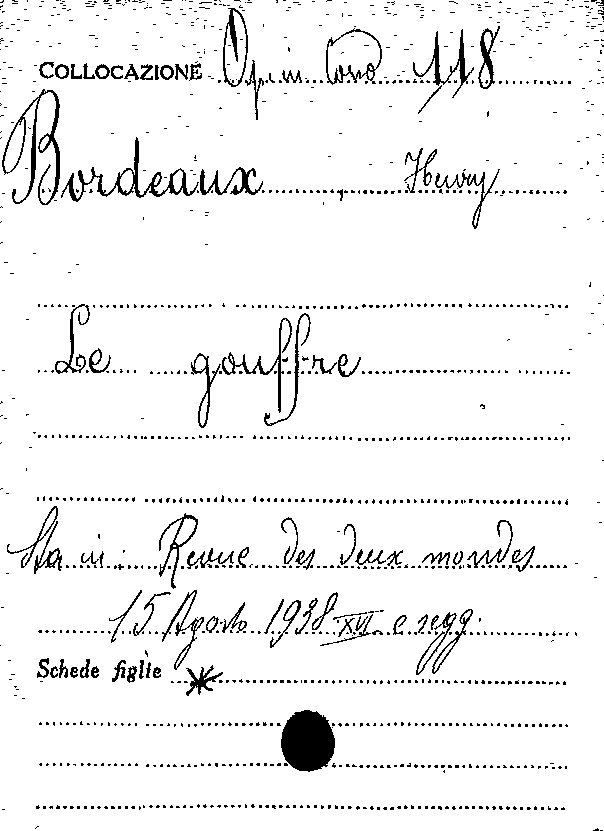 COLLOCAZIONE Op in Corso 118
Bordeaux, Henry
Le gouffre
Sta in: Revue des deux mondes
15 Agosto 1938 XVI e segg.
Schede figlie *